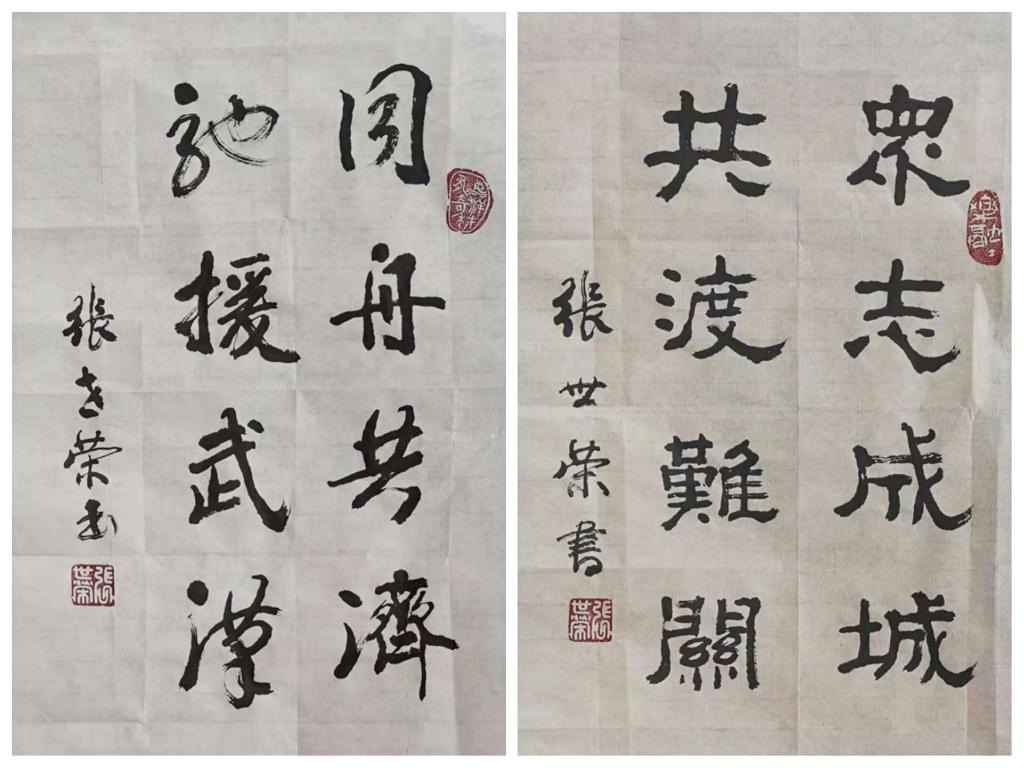 同舟共濟
馳援武漢
張世荣书
張世荣
衆志成城
共渡難關
張世荣書
張世荣